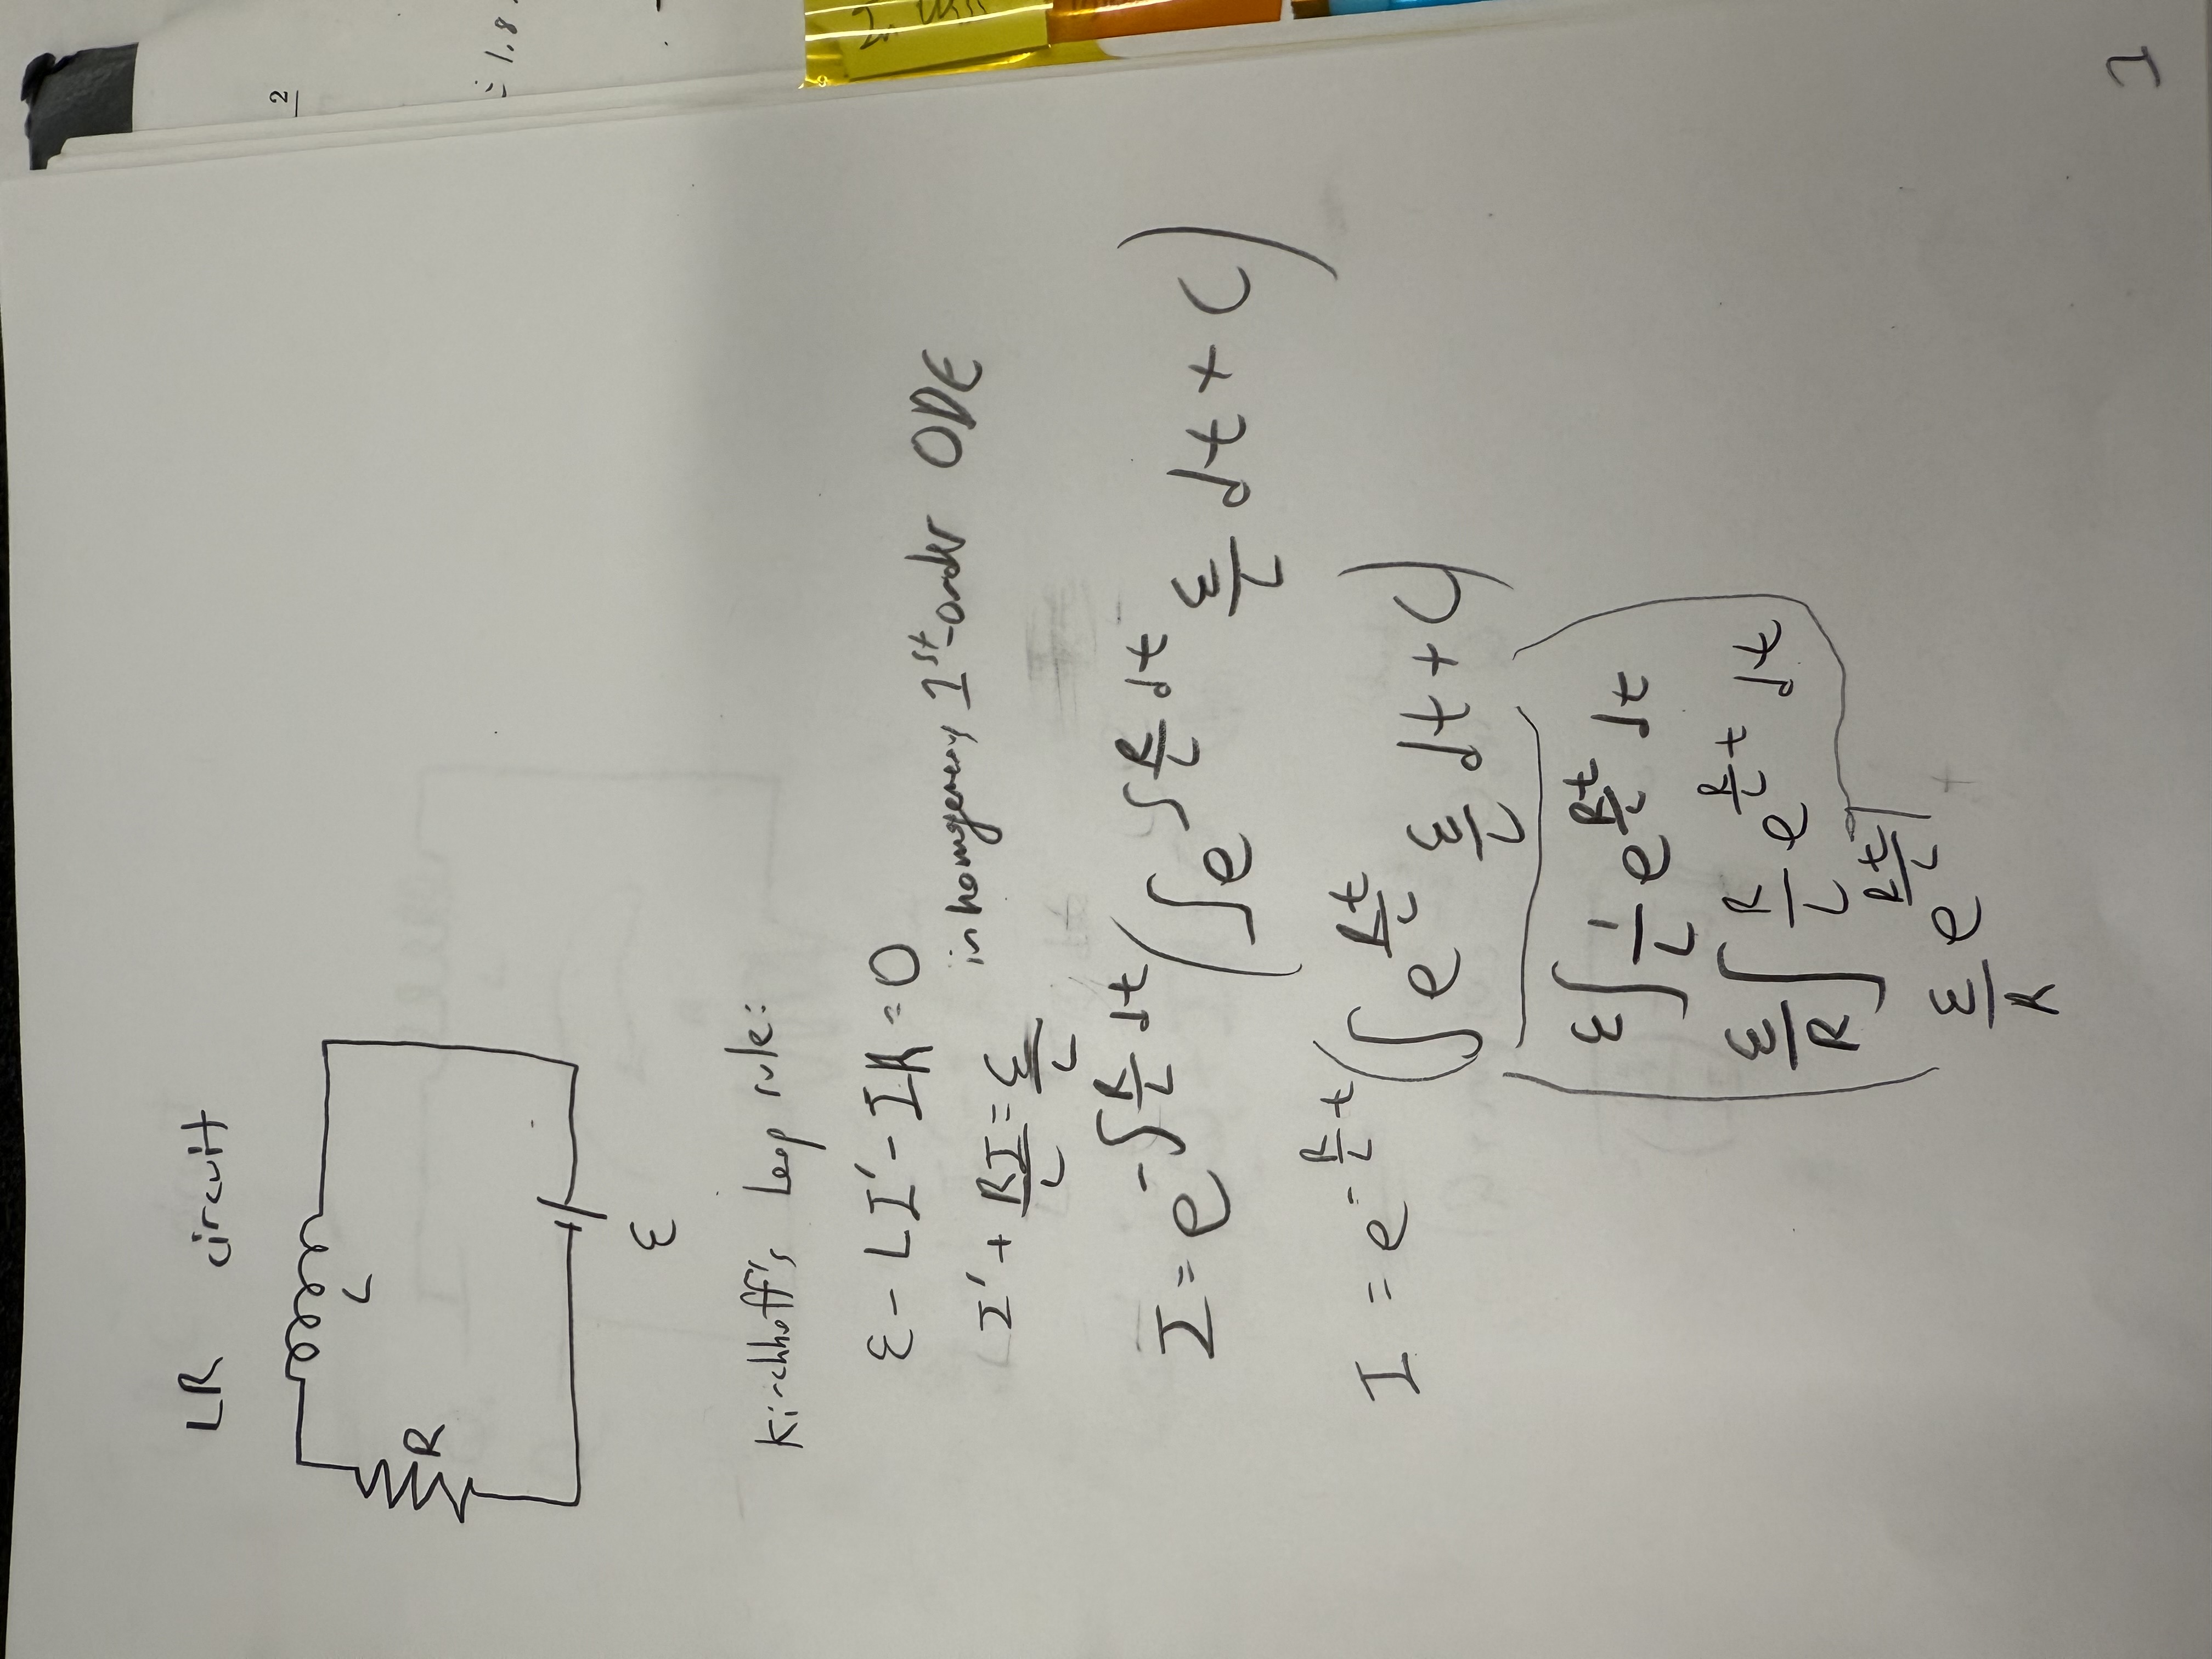 LR circuit
L
R
ε
Kirchhoff's Loop rule:
ε - LI' - IR = 0
I' + RI/L = ε/L inhomogeneous 1st-order ODE
I = e^(-∫ R/L dt) (∫ e^(∫ R/L dt) ε/L dt + C)
I = e^(-R/L t) (∫ e^(Rt/L) ε/L dt + C)
ε ∫ 1/L e^(Rt/L) dt
ε/R ∫ R/L e^(R/L t) dt
ε/R e^(Rt/L)
1
2
= 1.8